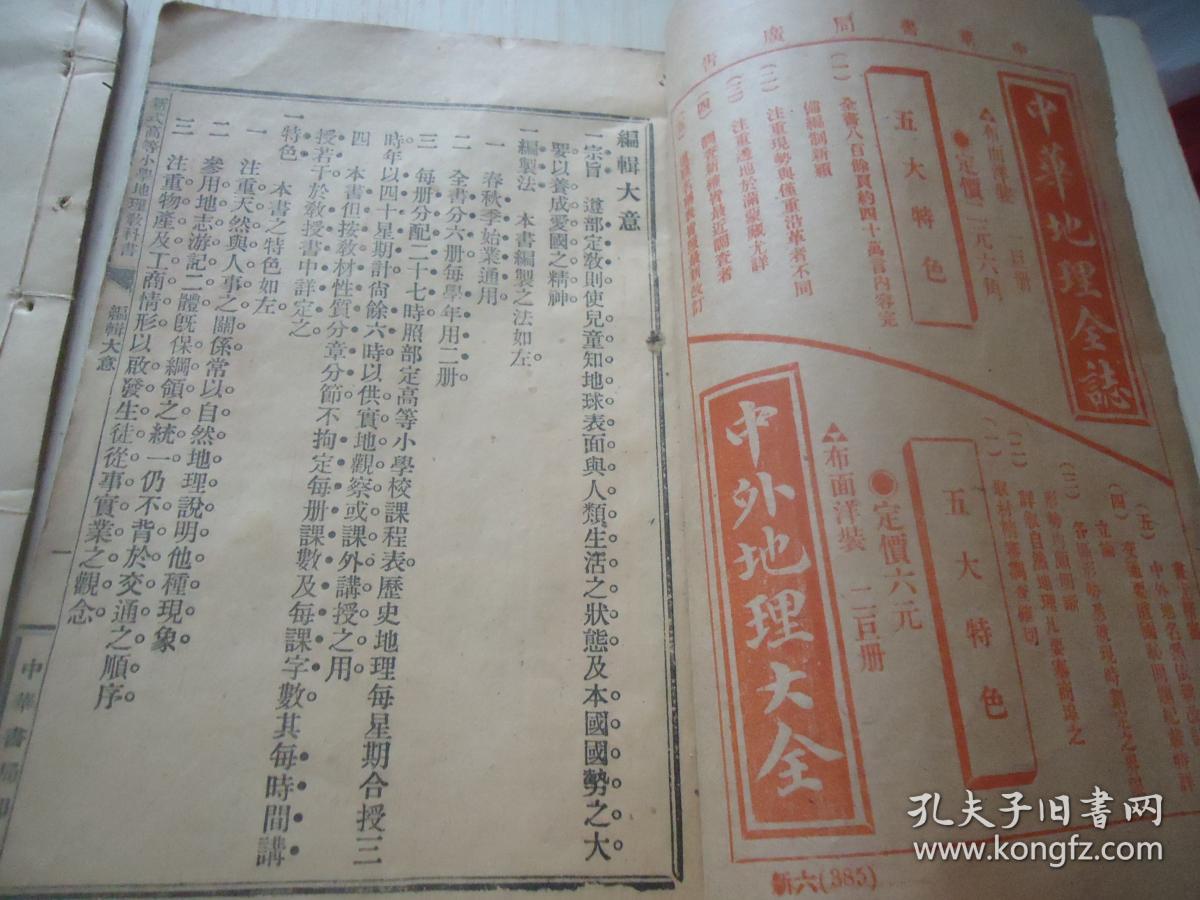 中華書局廣告
中華地理全誌
▲布面洋裝　一巨冊
◉定價二元六角
五大特色
(一)　全書八百餘頁約四十萬言內容完
備編制新穎
(二)　注重現勢與僅重沿革者不同
(三)　注重邊地於滿蒙藏尤詳
(四)
中外地理大全
▲布面洋裝　二巨册
◉定價六元
五大特色
(一)
詳敍自然地理凡要塞商埠之
(二)
形勢
(三)
(四)
(五)
新六(385)
編輯大意
一宗旨　遵部定敎則使兒童知地球表面與人類生活之狀態及本國國勢之大
要以養成愛國之精神
一編製法　本書編製之法如左
一　春秋季始業通用
二　全書分六册每學年用二册
三　每册分配二十七時照部定高等小學校課程表歷史地理每星期合授三
時年以四十星期計尙餘六時以供實地觀察或課外講授之用
四　本書但按敎材性質分章分節不拘定每册課數及每課字數其每時間講
授若干於敎授書中詳定之
一特色　本書之特色如左
一　注重天然與人事之關係常以自然地理說明他種現象
二　參用地志游記二體旣保綱領之統一仍不背於交通之順序
三　注重物產及工商情形以啟發生徒從事實業之觀念
新式高等小學地理敎科書　編輯大意　一　中華書局印
孔夫子旧书网
www.kongfz.com